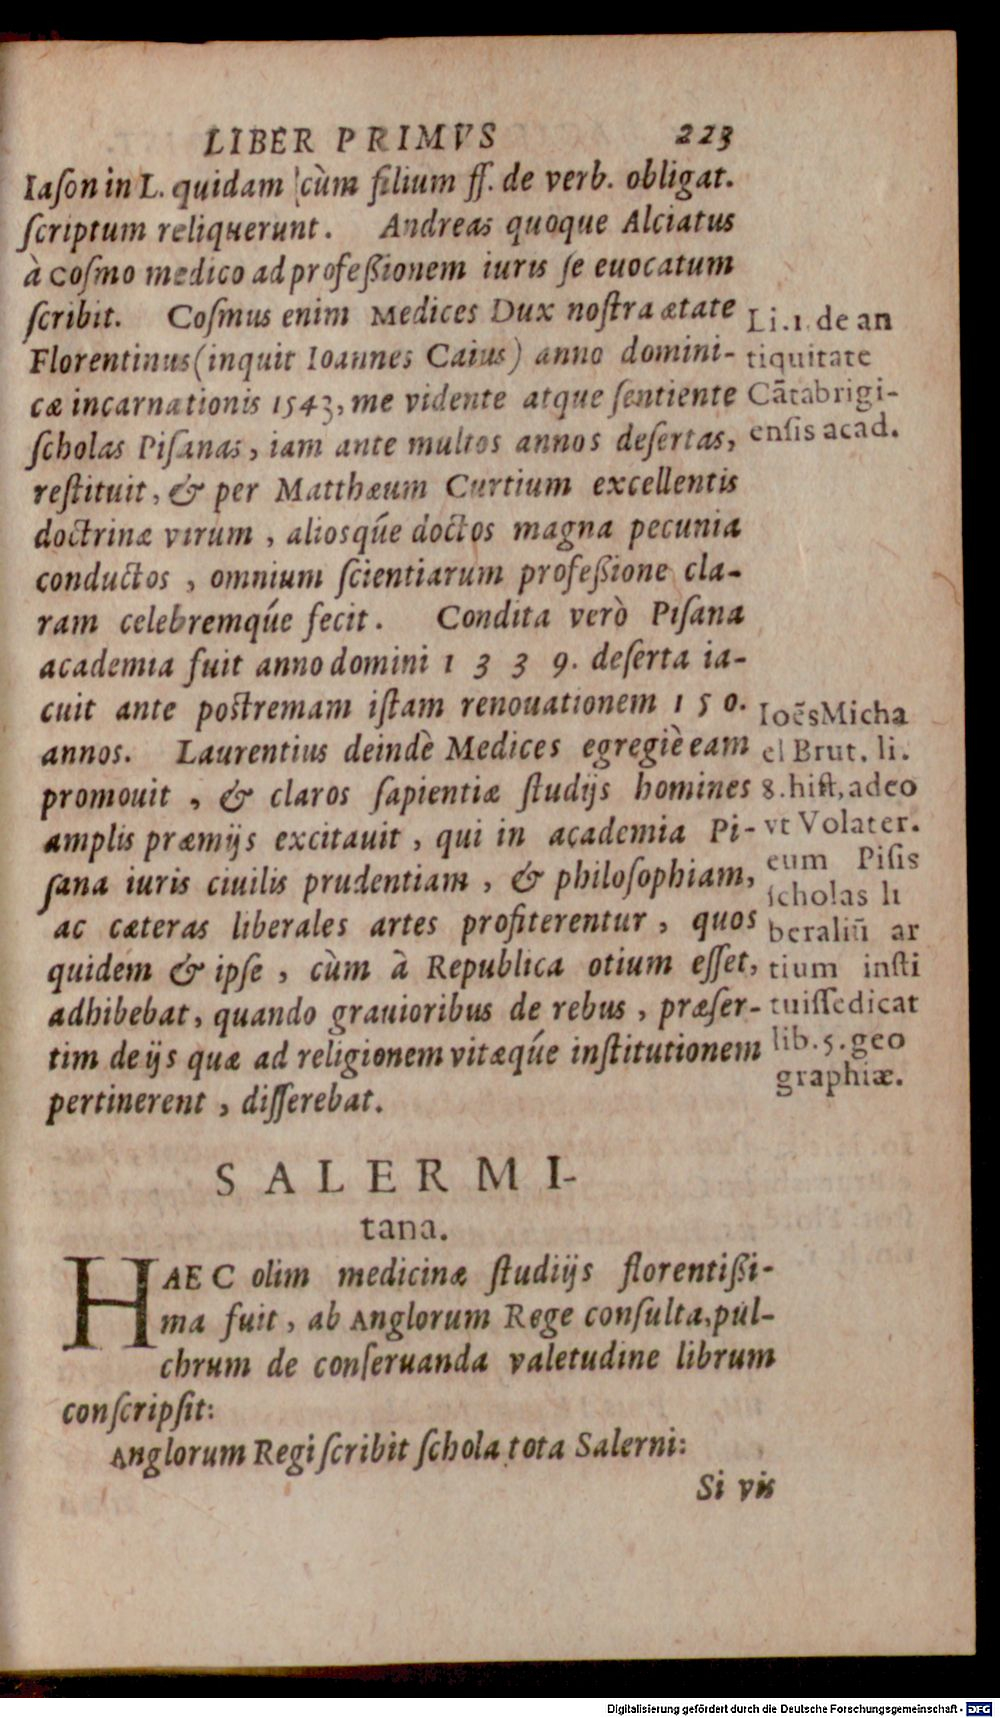 LIBER PRIMVS 223
Iaſon in L. quidam cùm filium ff. de verb. obligat.
ſcriptum reliquerunt. Andreas quoque Alciatus
à Coſmo medico ad profeſßionem iuris ſe euocatum
ſcribit. Coſmus enim Medices Dux noſtra ætate
Florentinus (inquit Ioannes Caius) anno domini-
cæ incarnationis 1543, me vidente atque ſentiente
ſcholas Piſanas, iam ante multos annos deſertas,
reſtituit, & per Matthæum Curtium excellentis
doctrinæ virum, aliosqúe doctos magna pecunia
conductos, omnium ſcientiarum profeſßione cla-
ram celebremqúe fecit. Condita verò Piſana
academia fuit anno domini 1 3 3 9. deſerta ia-
cuit ante poſtremam iſtam renouationem 1 5 0.
annos. Laurentius deindè Medices egregiè eam
promouit, & claros ſapientiæ ſtudijs homines
amplis præmijs excitauit, qui in academia Pi-
ſana iuris ciuilis prudentiam, & philoſophiam,
ac cæteras liberales artes profiterentur, quos
quidem & ipſe, cùm à Republica otium eſſet,
adhibebat, quando grauioribus de rebus, præſer-
tim de ijs quæ ad religionem vitæqúe inſtitutionem
pertinerent, diſſerebat.
Li.1. de an
tiquitate
Cãtabrigi-
enſis acad.
Ioẽs Micha
el Brut. li.
8. hiſt, adeo
vt Volater.
eum Piſis
ſcholas li
beraliũ ar
tium inſti
tuiſſe dicat
lib. 5. geo
graphiæ.
SALERMI-
tana.
HAEC olim medicinæ ſtudiijs florentißi-
ma fuit, ab Anglorum Rege conſulta, pul-
chrum de conſeruanda valetudine librum
conſcripſit:
Anglorum Regi ſcribit ſchola tota Salerni:
Si vis
Digitalisierung gefördert durch die Deutsche Forschungsgemeinschaft - DFG